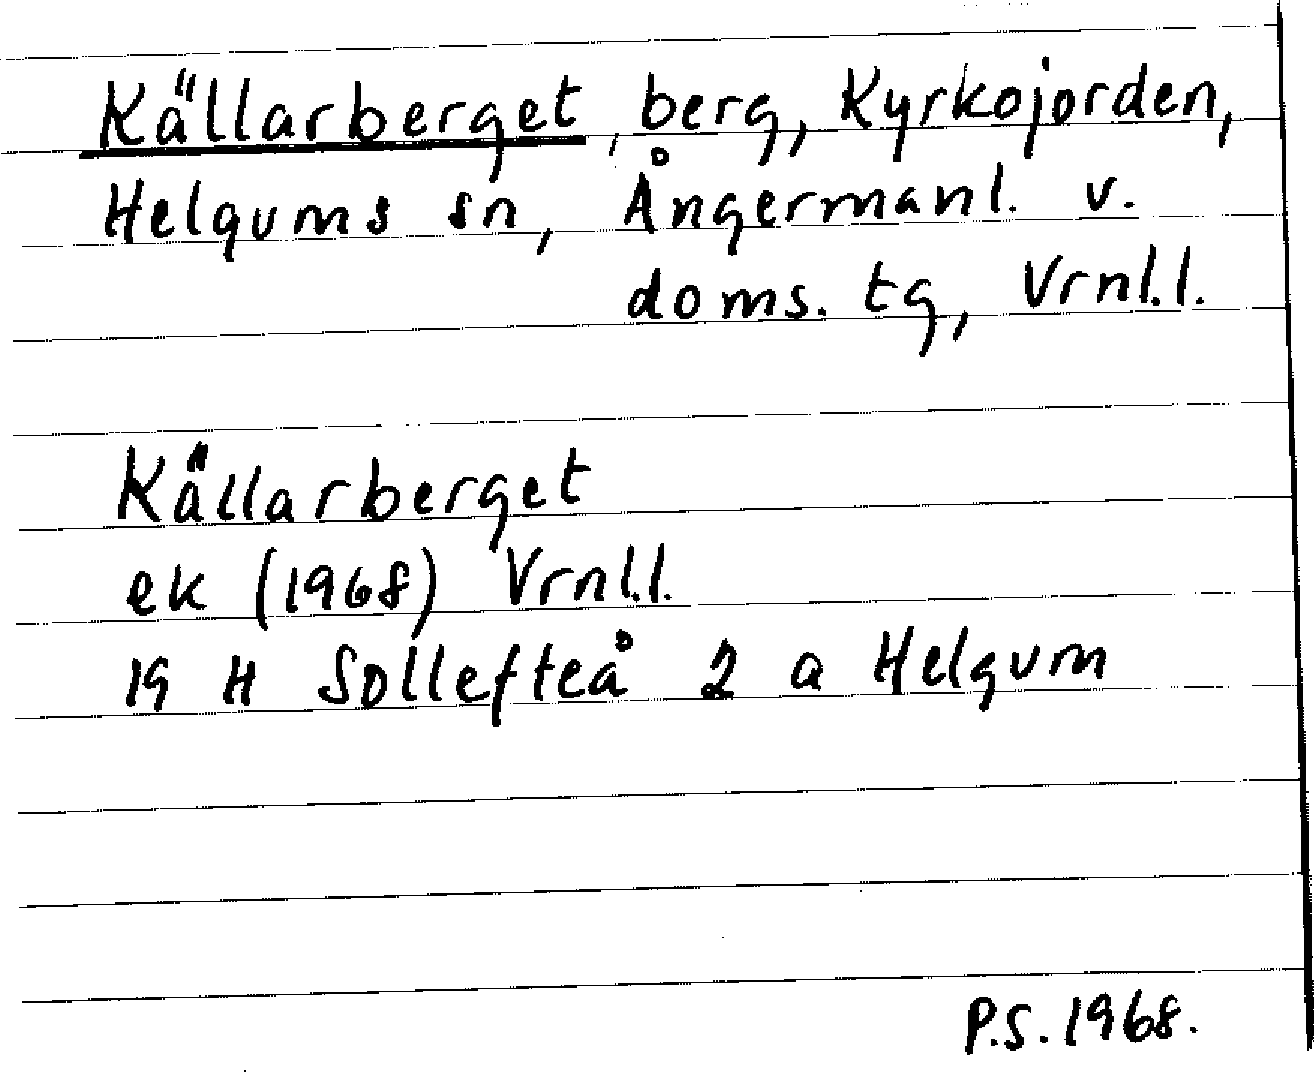 Källarberget, berg, Kyrkojorden,
Helgums sn, Ångermanl. v.
doms. tg, Vrnl.l.
Källarberget
ek (1968) Vrnl.l.
19 H Sollefteå 2 a Helgum
P.S. 1968.